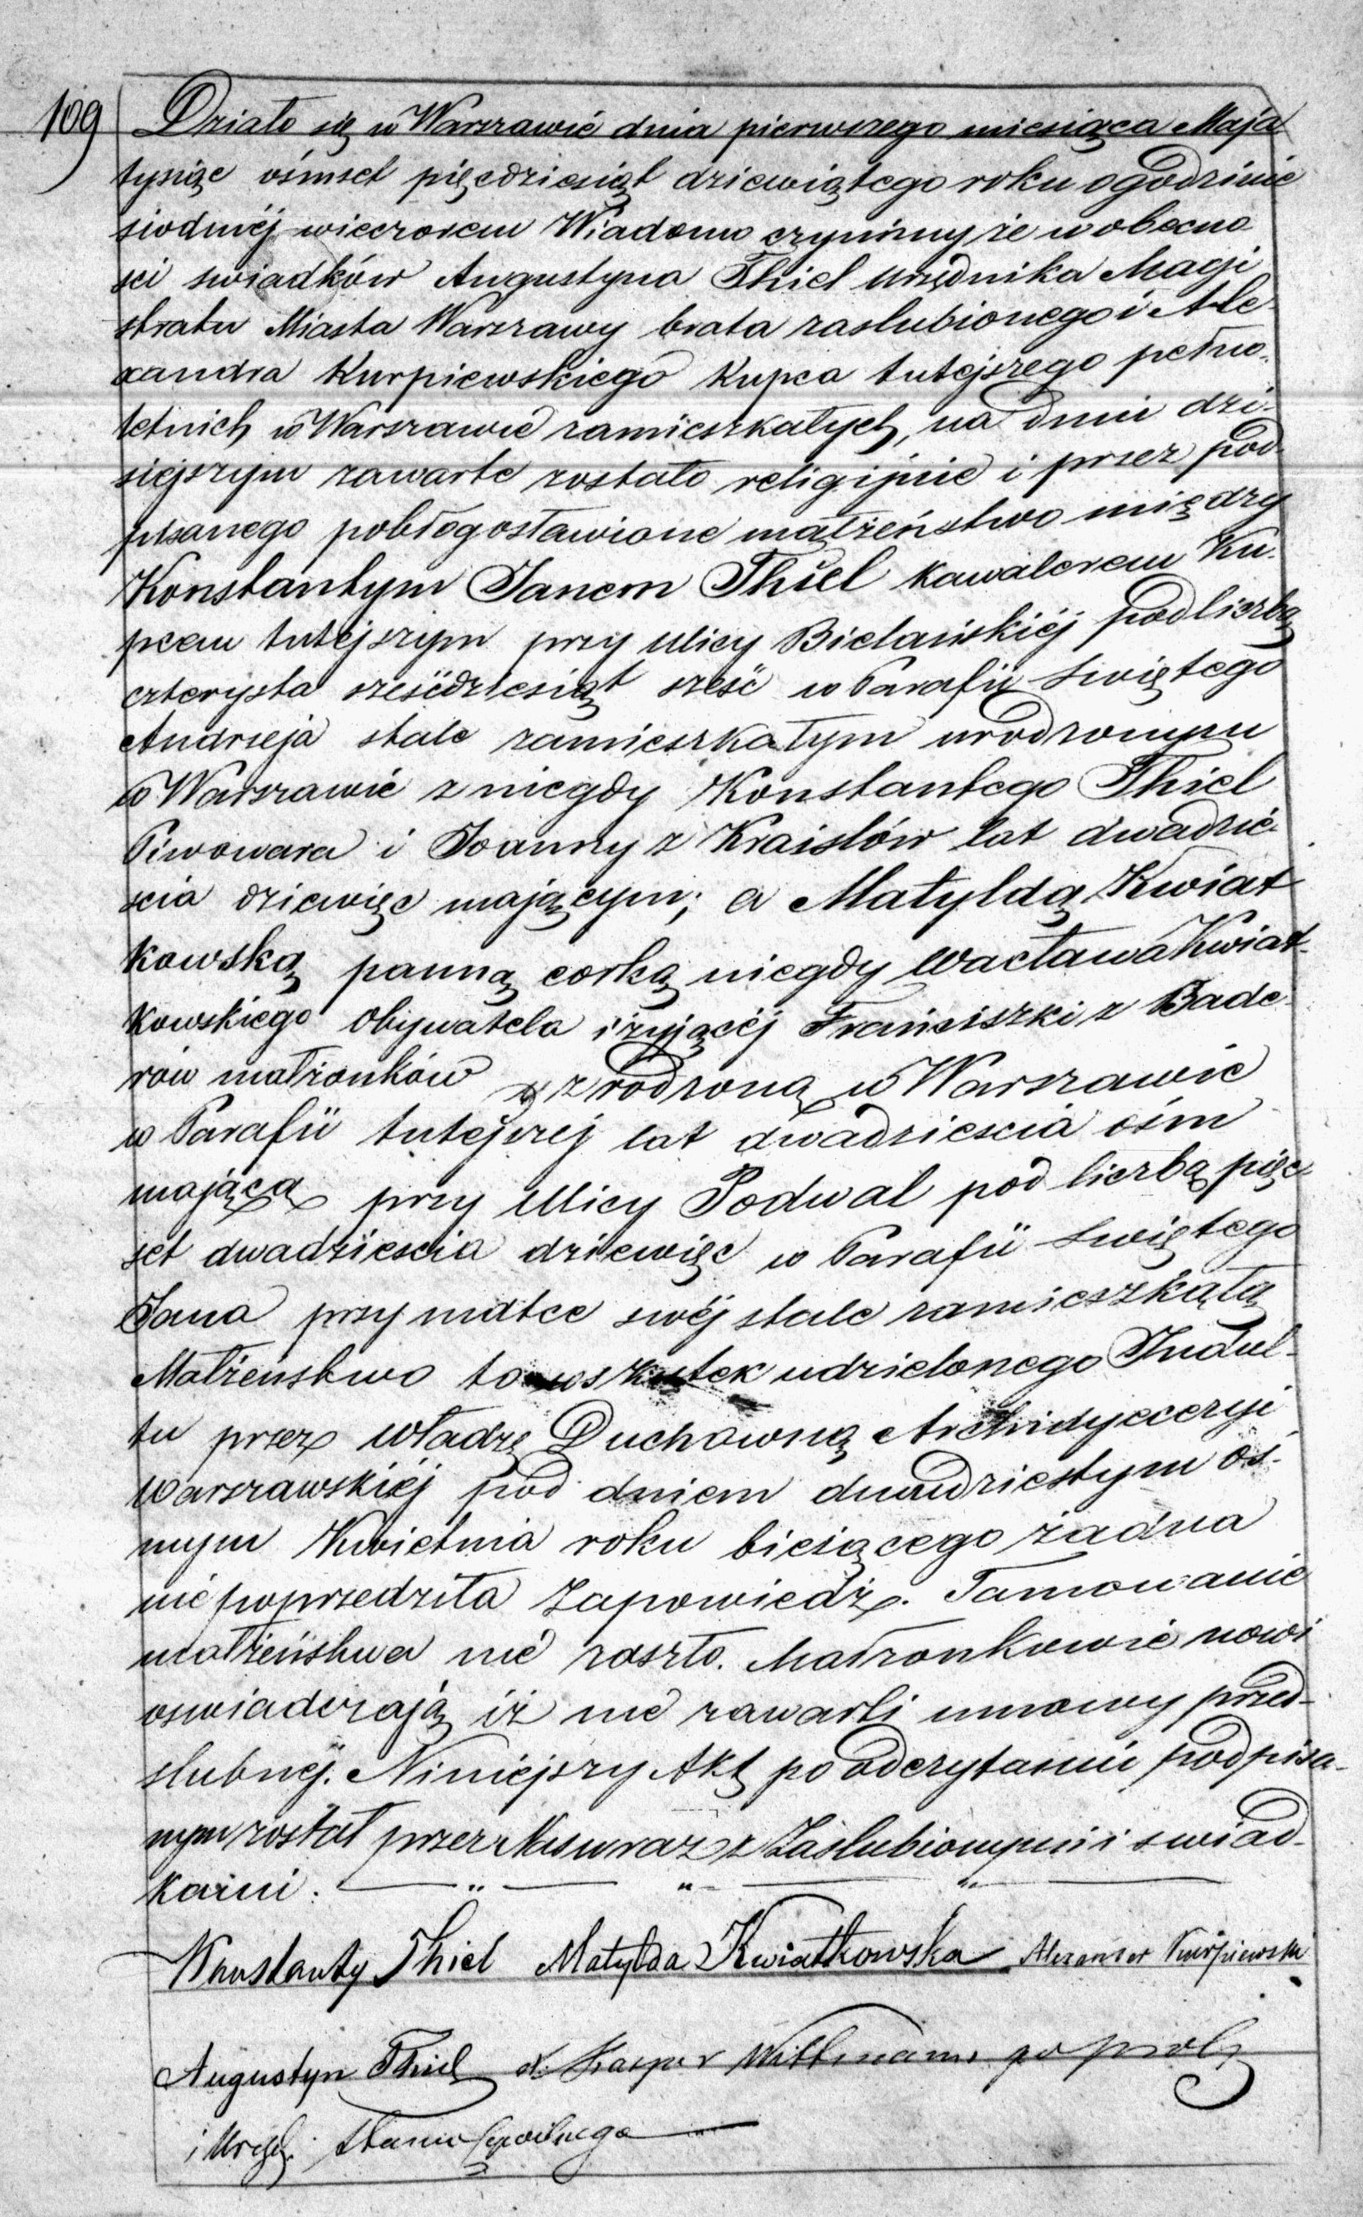 109 Działo się w Warszawie dnia pierwszego miesiąca Maja
tysiąc ośmset pięcdziesiąt dziewiątego roku o godzinie
siodméj wieczorem Wiadomo czynimy że w obecno
ści swiadków Augustyna Thiel Urzędnika Magi
stratu Miasta Warszawy brata zaslubionego i Ale
xandra Kurpiewskiego Kupca tutejszego pełno-
letnich w Warszawie zamieszkałych, na dniu dzi-
siejszym zawarte zostało religijnie i przez pod-
pisanego pobłogosławione małżeństwo między
Konstantym Janem Thiel kawalerem Ku-
pcem tutejszym przy Ulicy Bielańskiéj pod liczbą
czterysta sześćdziesiąt sześć w Parafii Swiętego
Andrzeja stale zamieszkałym urodzonym
w Warszawie z niegdy Konstantego Thiel
Piwowara i Joanny z Kraislów lat dwadzie-
scia dziewięc mającym; a Matyldą Kwiat
kowską panną corką niegdy Wacława Kwiat-
kowskiego Obywatela i żyjącéj Franciszki z Bade-
rów małżonków zrodzoną w Warszawie
w Parafii tutejszej lat dwadziescia ośm
mającą przy Ulicy Podwal pod liczbą pięc
set dwadziescia dziewięc w Parafii Swiętego
Jana przy matce swéj stale zamieszkałą
Małżenstwo to wskutek udzielonego Indul-
tu przez Władzę Duchowną Archidyecezyi
Warszawskiéj pod dniem dwudziestym ós-
mym Kwietnia roku bieżącego żadna
nie poprzedziła Zapowiedź. Tamowanie
małżeństwa nie zaszło. Małżonkowie nowi
oswiadczają iż nie zawarli umowy przed-
slubnéj. Niniejszy Akt po odczytaniu podpisa-
nym został przez Nas wraz z Zaslubionymi i swiad-
kami.
Konstanty Thiel Matylda Kwiatkowska Alexander Kurpiewski
Augustyn Thiel X. Kasper Wittmann
i Urzęd. Stanu Cywilnego